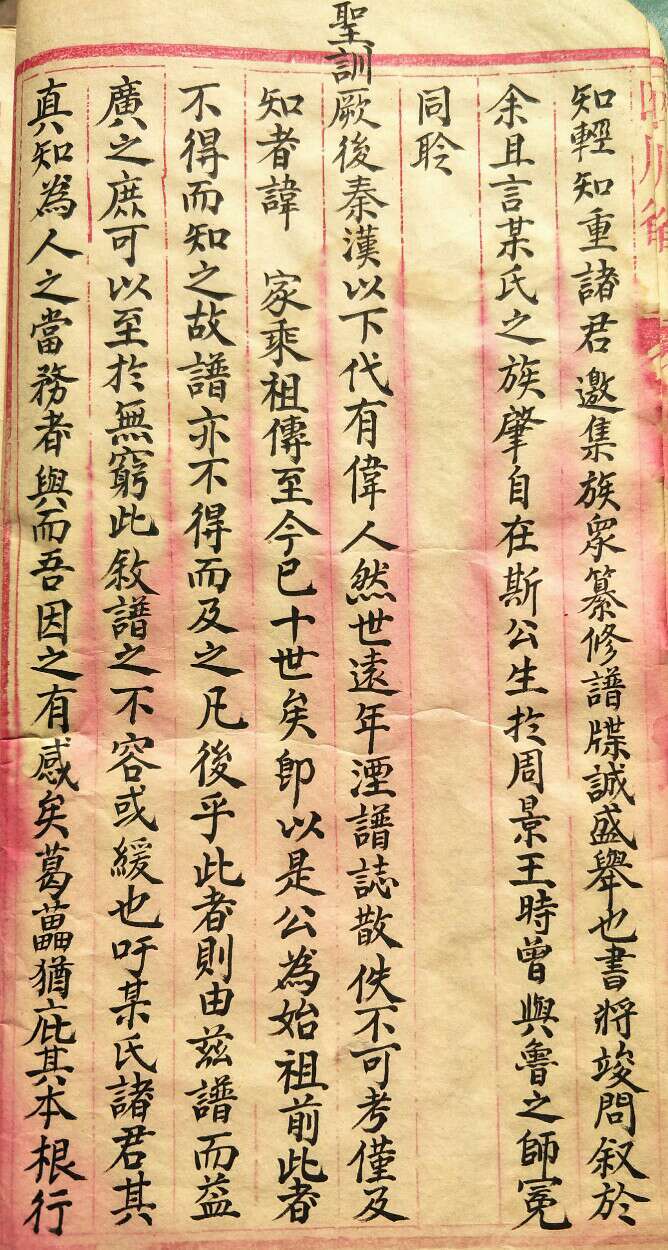 知輕知重諸君邀集族眾纂修譜牒誠盛舉也書將竣問叙於
余且言某氏之族肇自在斯公生於周景王時曾與魯之師冕
同聆
聖訓厥後秦漢以下代有偉人然世遠年湮譜誌散佚不可考僅及
知者諱 家乘祖傳至今已十世矣即以是公為始祖前此者
不得而知之故譜亦不得而及之凡後乎此者則由茲譜而益
廣之庶可以至於無窮此敘譜之不容或緩也吁某氏諸君其
真知為人之當務者與而吾因之有感矣葛藟猶庇其本根行